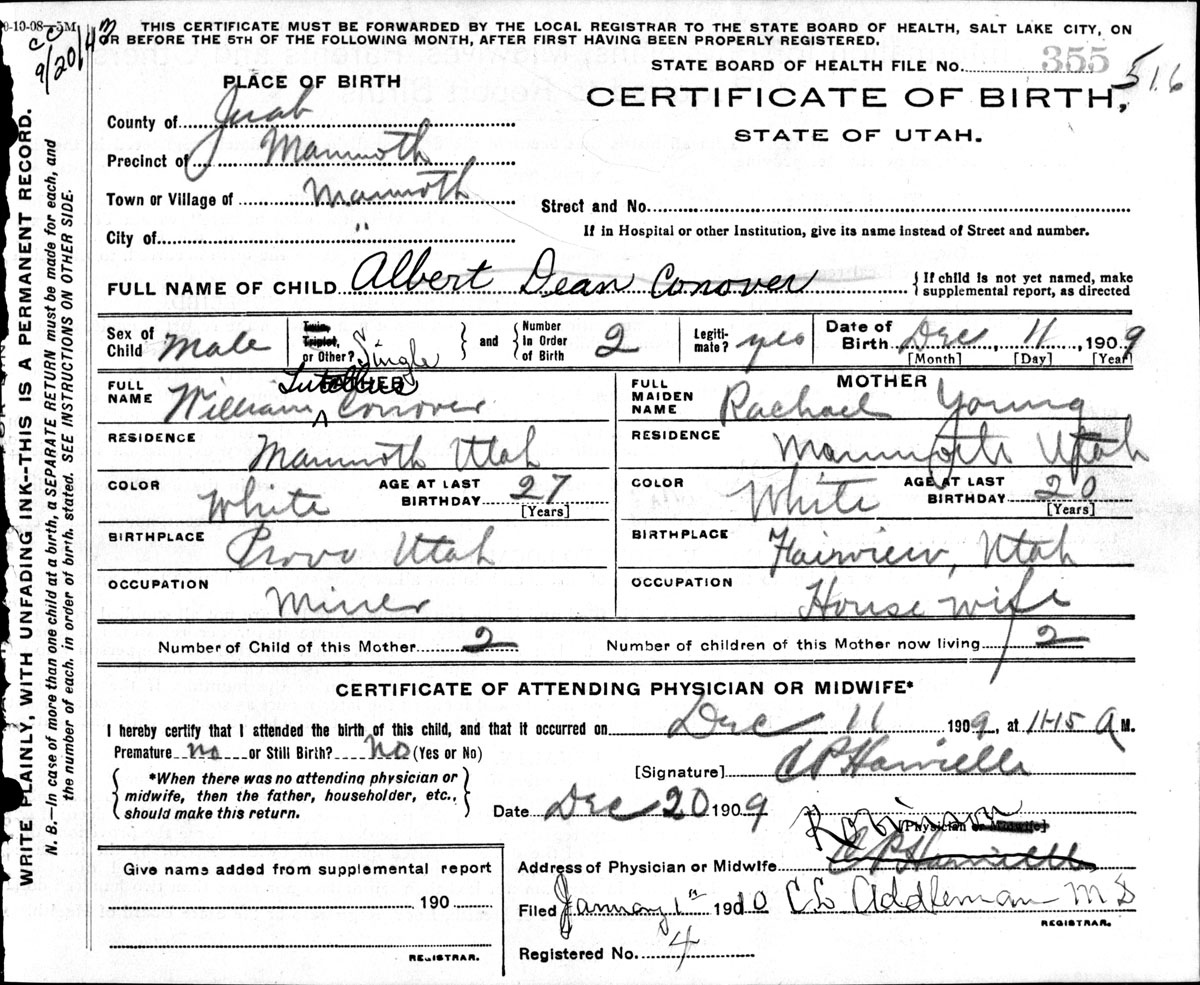 0-10-08-5M
THIS CERTIFICATE MUST BE FORWARDED BY THE LOCAL REGISTRAR TO THE STATE BOARD OF HEALTH, SALT LAKE CITY, ON
OR BEFORE THE 5TH OF THE FOLLOWING MONTH, AFTER FIRST HAVING BEEN PROPERLY REGISTERED.
STATE BOARD OF HEALTH FILE NO. 355 516
PLACE OF BIRTH
CERTIFICATE OF BIRTH,
STATE OF UTAH.
County of Juab
Precinct of Mammoth
Town or Village of Mammoth
Street and No.
City of "
If in Hospital or other Institution, give its name instead of Street and number.
FULL NAME OF CHILD Albert Dean Conover { If child is not yet named, make supplemental report, as directed
Sex of Child Male Twin, Triplet, or Other? Single } and { Number In Order of Birth 2 Legiti-mate? yes Date of Birth Dec 11, 1909
[Month] [Day] [Year]
FATHER
MOTHER
FULL NAME William Conover
FULL MAIDEN NAME Rachael Young
RESIDENCE Mammoth Utah
RESIDENCE Mammoth Utah
COLOR White AGE AT LAST BIRTHDAY 27 [Years]
COLOR White AGE AT LAST BIRTHDAY 20 [Years]
BIRTHPLACE Provo Utah
BIRTHPLACE Fairview, Utah
OCCUPATION Miner
OCCUPATION House wife
Number of Child of this Mother 2 Number of children of this Mother now living 2
CERTIFICATE OF ATTENDING PHYSICIAN OR MIDWIFE*
I hereby certify that I attended the birth of this child, and that it occurred on Dec 11 1909, at 11-15 A M.
Premature no or Still Birth? No (Yes or No)
[Signature]
*When there was no attending physician or
midwife, then the father, householder, etc.,
should make this return.
Date Dec 20 1909
[Physician or Midwife]
Address of Physician or Midwife Robinson
Give name added from supplemental report
190
REGISTRAR.
Filed January 1st 1910 C L Addleman M D
REGISTRAR.
Registered No. 4
WRITE PLAINLY, WITH UNFADING INK--THIS IS A PERMANENT RECORD.
N. B.—In case of more than one child at a birth, a SEPARATE RETURN must be made for each, and
the number of each, in order of birth, stated. SEE INSTRUCTIONS ON OTHER SIDE.